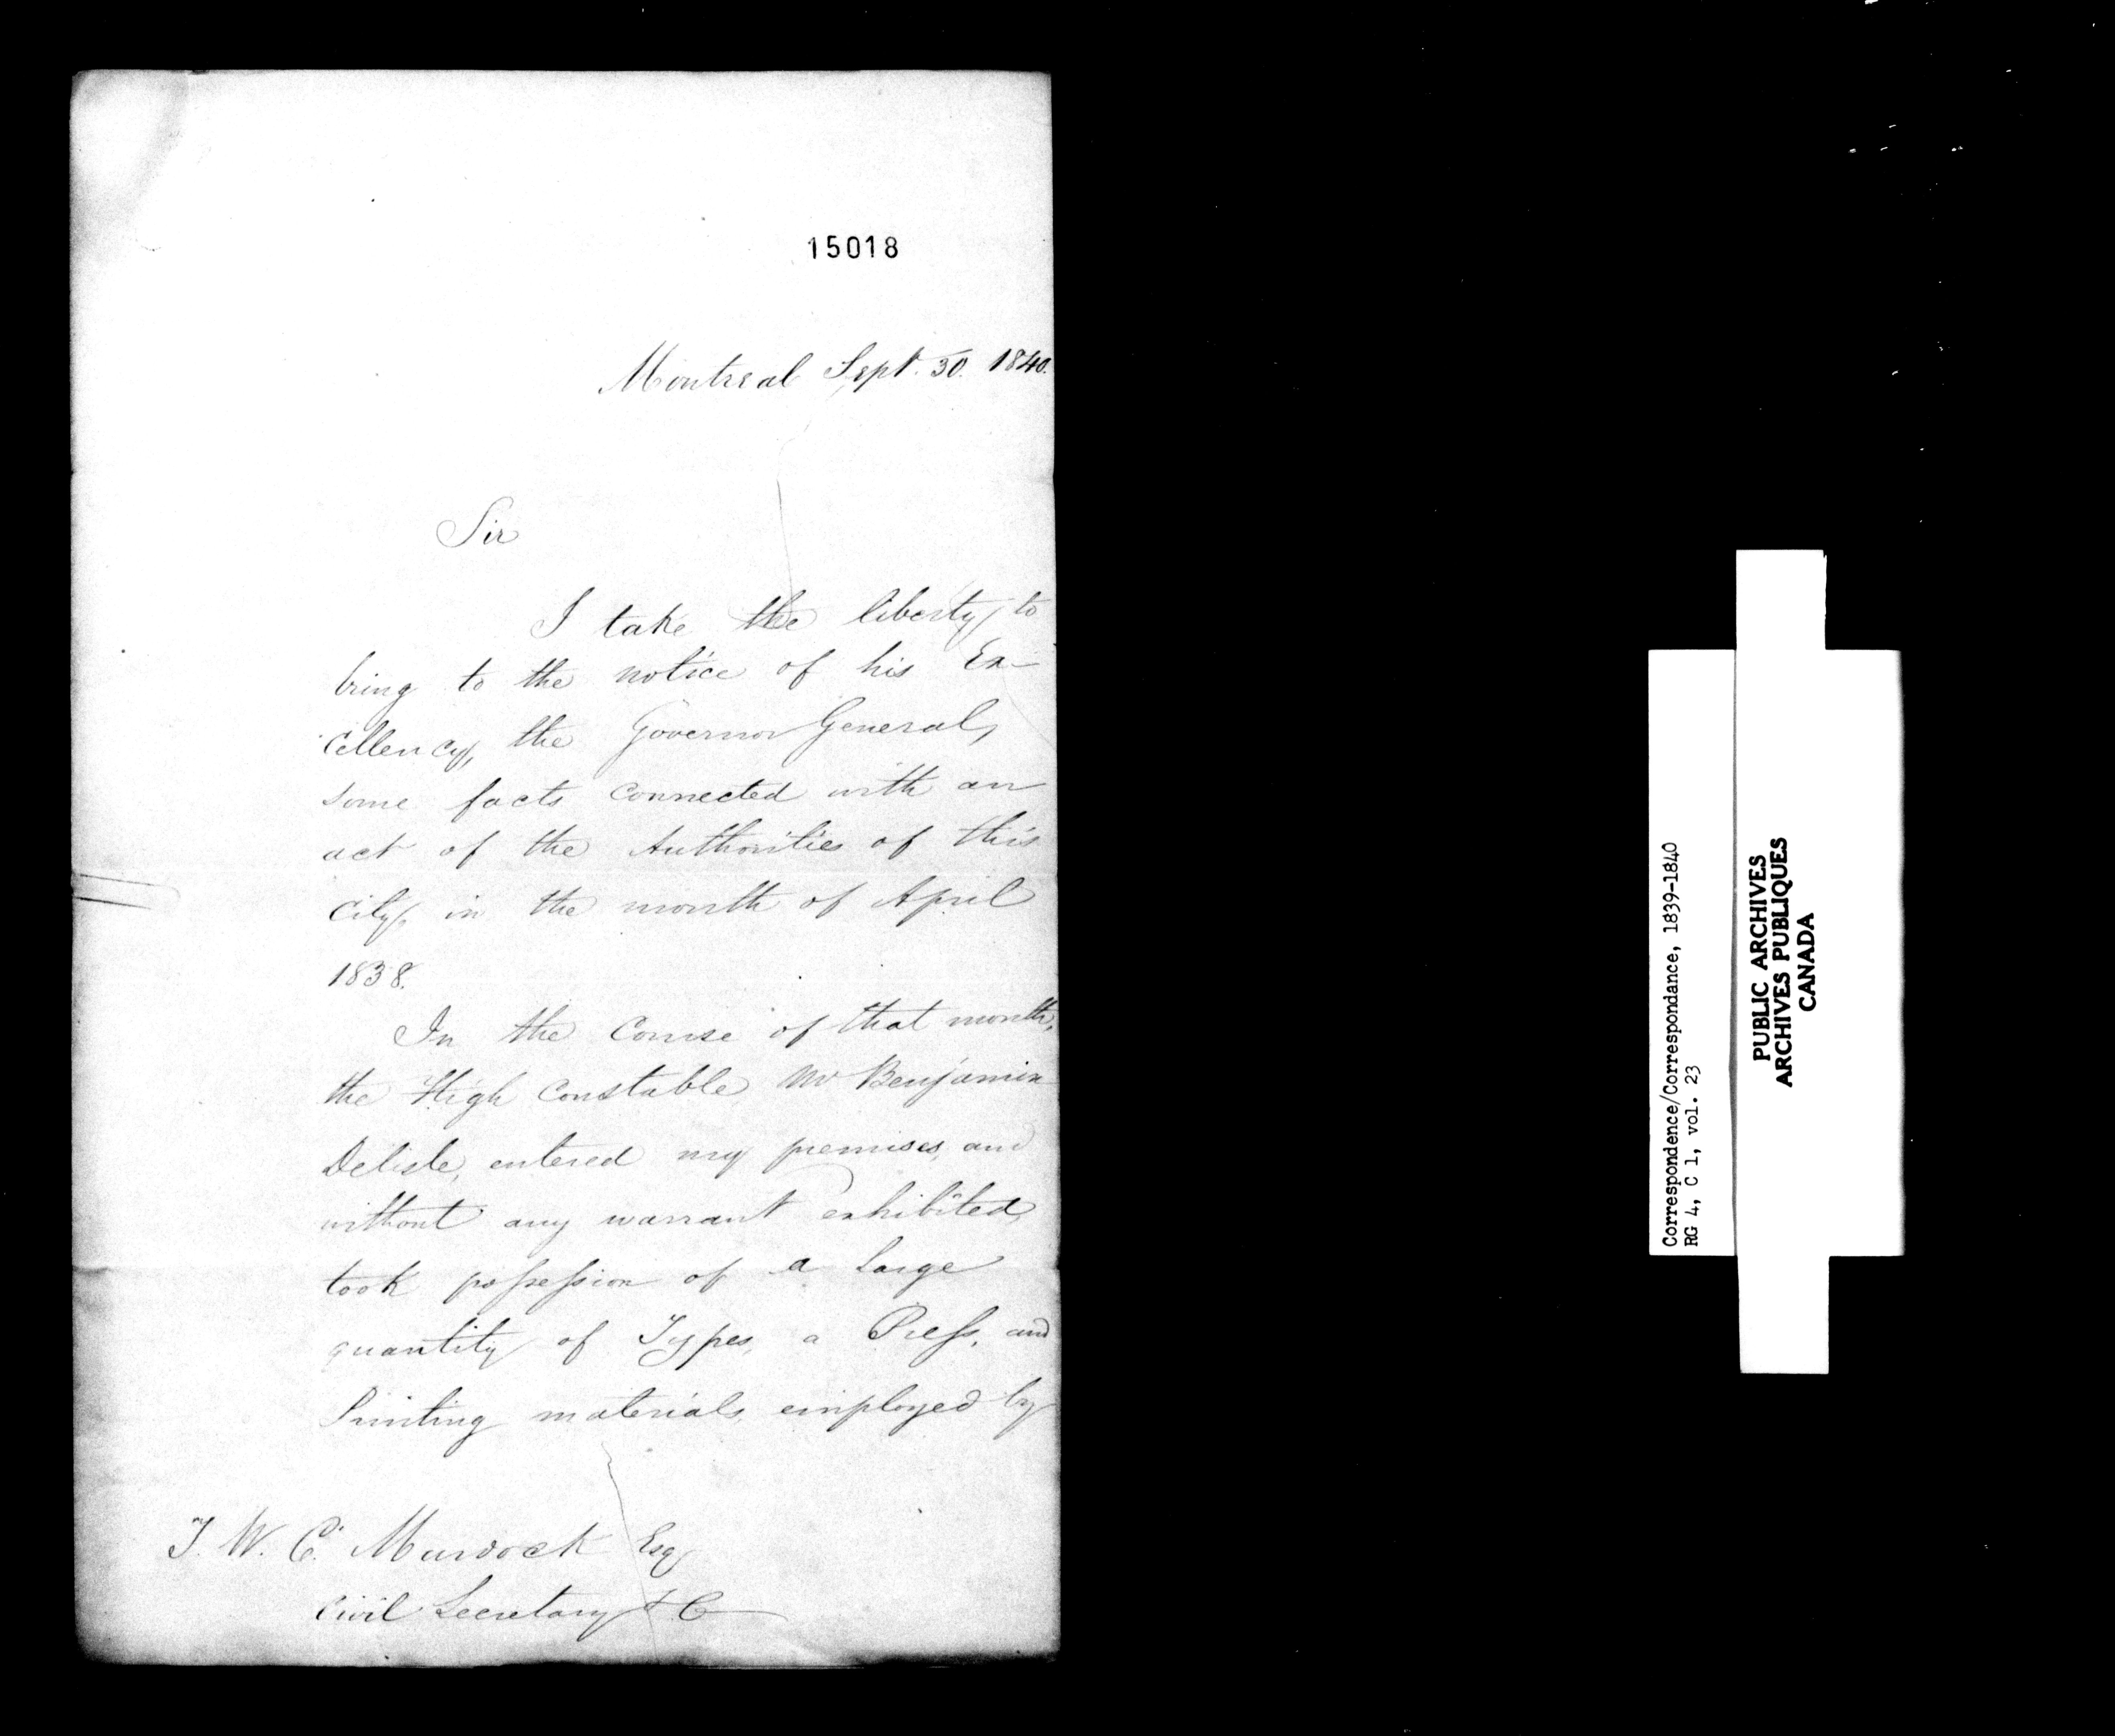 15018
Montreal Sept. 30. 1840.
Sir
I take the liberty to
bring to the notice of his Ex-
cellency, the Governor General,
some facts connected with an
act of the Authorities of this
city, in the month of April
1838.
In the course of that month,
the High Constable Mr Benjamin
Delisle, entered my premises, and
without any warrant exhibited,
took possession of a large
quantity of Types, a Press, and
Printing materials, employed by
T. W. C. Murdock Esq
Civil Secretary & C
Correspondence/Correspondance, 1839-1840
RG 4, C 1, vol. 23
PUBLIC ARCHIVES
ARCHIVES PUBLIQUES
CANADA